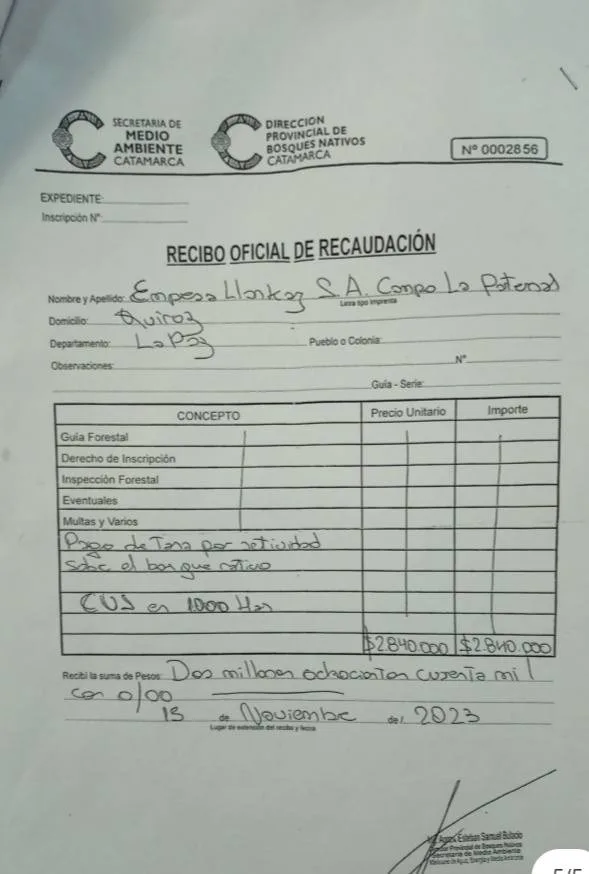 SECRETARIA DE
MEDIO
AMBIENTE
CATAMARCA
DIRECCION
PROVINCIAL DE
BOSQUES NATIVOS
CATAMARCA
Nº 0002856
EXPEDIENTE:
Inscripción Nº:
RECIBO OFICIAL DE RECAUDACIÓN
Nombre y Apellido: Empesa Llankaz S.A. Campo La Paternal
Letra tipo imprenta
Domicilio: Quiroz
Departamento: La Paz Pueblo o Colonia:
Observaciones: Nº
Guía - Serie:
CONCEPTO Precio Unitario Importe
Guía Forestal
Derecho de Inscripción
Inspección Forestal
Eventuales
Multas y Varios
Pago de Tasa por actividad
sobre el bosque nativo
CUS en 1000 Has
$2.840.000 $2.840.000
Recibí la suma de Pesos: Dos millones ochocientos cuarenta mil
con 0/00
15 de Noviembre de 2023
Lugar de extensión del recibo y fecha
Esteban Samuel Bulacio
Director Provincial de Bosques Nativos
Secretaría de Medio Ambiente
Ministerio de Agua, Energía y Medio Ambiente